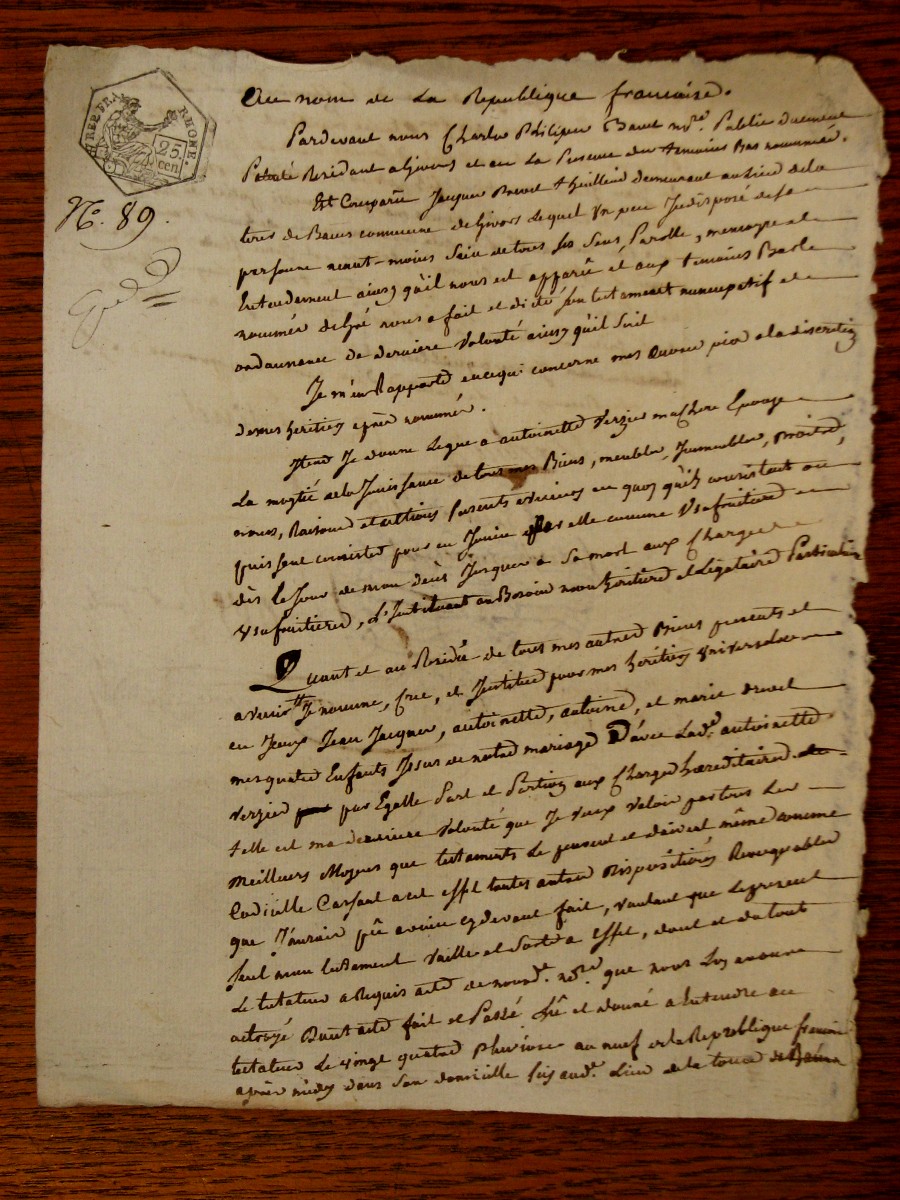 REP. FRA.
RHONE.
25 cen
N°. 89.
Au nom de La Republique francaise.
Pardevant nous Charles Philipe Nre. Public duement
Patenté Residant a Givors et en La Presence des temoins Bas nommés.
Est Comparû Jacques Drevet demeurant au Lieu de la
de commune de Givors Lequel un peu Jndisposé de sa
personne neant-moins Sain de tous ses Sens, Parolle, memoire et
Entendement ainsy qu'il nous est apparû et aux temoins Bas
nommés De Gré nous a fait et dicté son testament nuncupatif et
ordonnance de derniere volonté ainsy qu'il Suit
Je m'en Rapporte en ce qui concerne mes œuvres pies a la discretion
de mes heritiers après nommés.
Jtem Je donne Legue a antoinette Verzier ma Chere Epouse
La moytié de la Jouissance de tous mes Biens, meubles, Jmmeubles, Droits,
noms, Raisons et actions Presents a venir en quoy qu'ils consistent ou
puissent consister pour en Jouir par elle comme Usufruitiere
dès le Jour de mon décès Jusques a Sa mort aux Charges
Usufruitieres, L'Jnstituant au Besoin mon heritiere et Légataire Particuliere
Quant et au Residû de tous mes autres Biens presents et
a venir Je nomme, Crée, et Jnstitue pour mes heritiers universels
en Jceux Jean Jacques, antoinette, antoine, et marie drevet
mes quatre Enfants Jssus de notre mariage D'avec Lade. antoinette
verzier par Egalle Part et Portion aux Charges hereditaires
telle est ma derniere volonté que Je veux valoir par tous les
meilleurs moyens que testaments Le peuvent et doivent même comme
Codicille Cassant a cet effet toutes autres Dispositions Revoquables
que J'aurois pû avoir cy devant fait, voulant que Le present
seul mon testament vaille et Sorte a Effet, dont et du tout
Le testateur a Requis acte de nousd. nore. que nous Luy avons
octroyé Dont acte fait et Passé Lû et donné a Entendre au
testateur Le vingt quatre Pluviose an neuf de la Republique francaise
après midy dans Son domicille Sis aud. Lieu de la